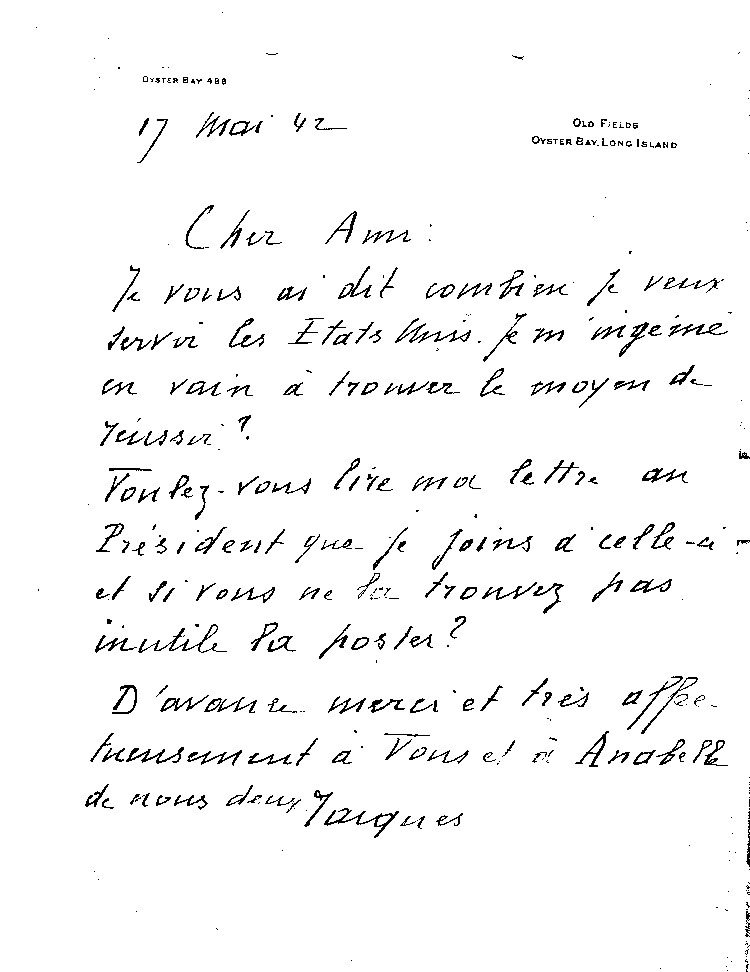 OYSTER BAY 488
17 Mai 42
OLD FIELDS
OYSTER BAY, LONG ISLAND
Cher Ami:
Je vous ai dit combien je veux
servir les Etats Unis. Je m'ingénie
en vain à trouver le moyen de
réussir?
Voulez-vous lire ma lettre au
Président que je joins à celle-ci
et si vous ne la trouvez pas
inutile la poster?
D'avance merci et très affec-
tueusement à Vous et à Anabelle
de nous deux Jacques